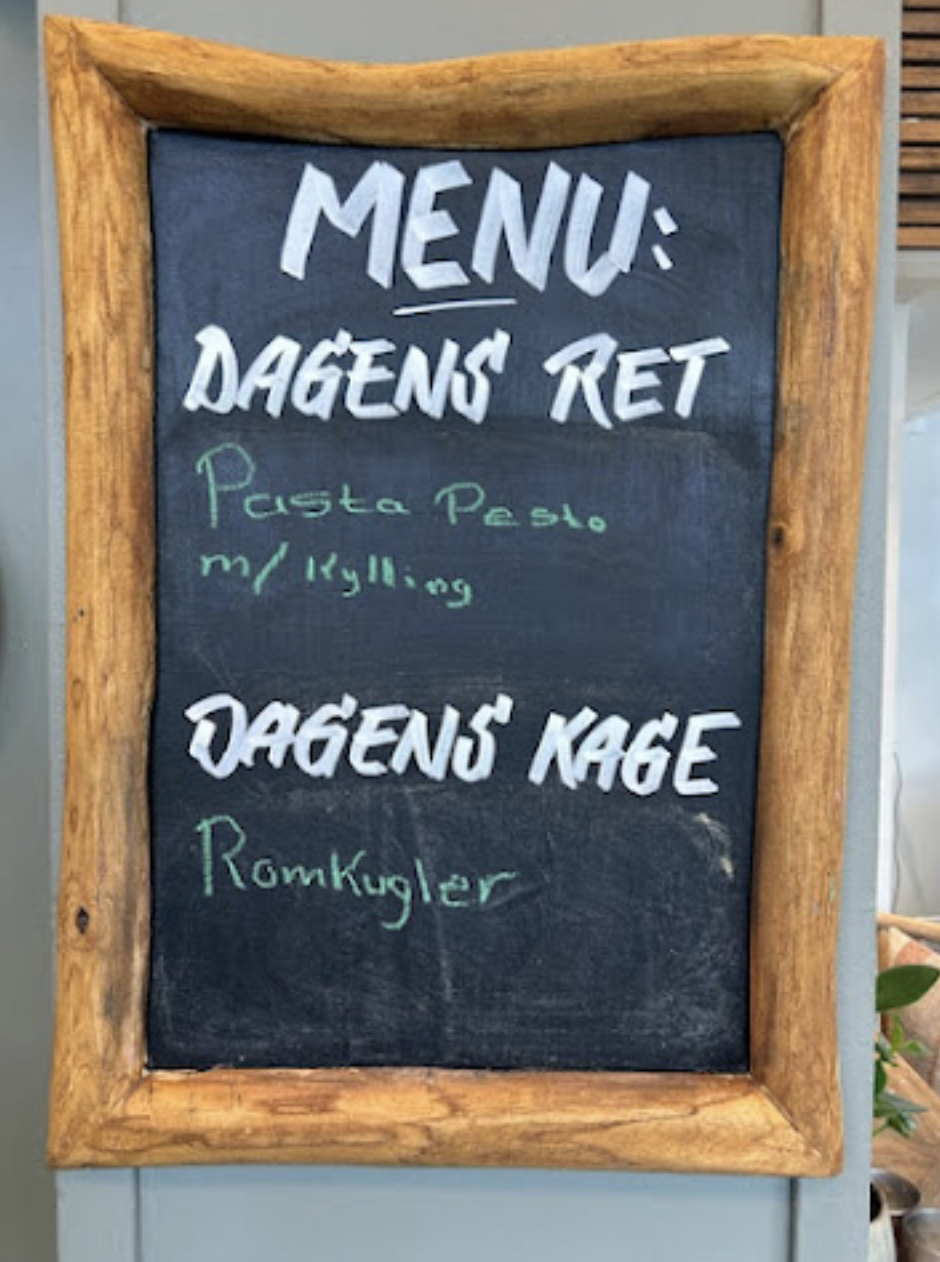 MENU:
DAGENS RET
Pasta Pesto
m/ Kylling
DAGENS KAGE
Romkugler